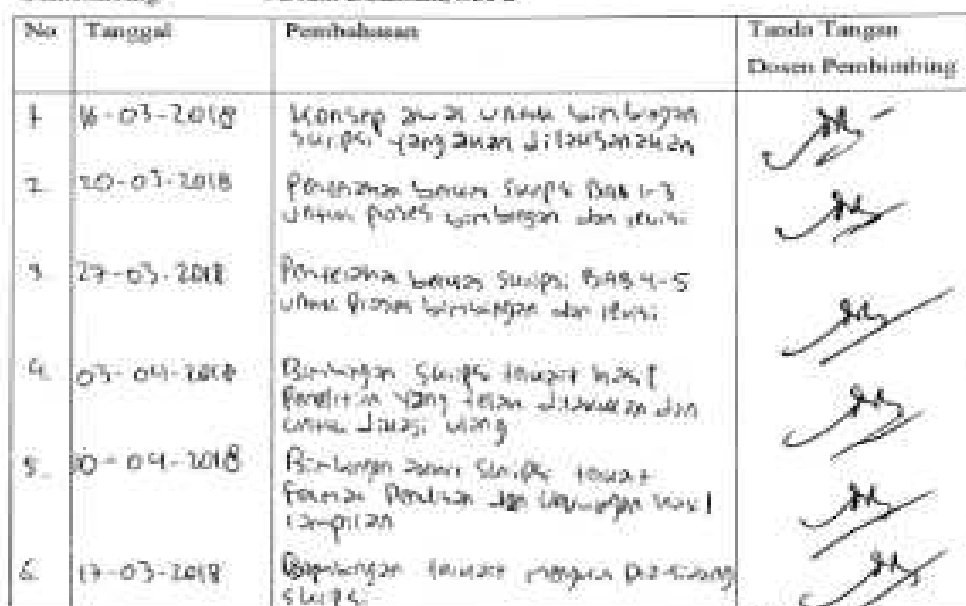 No Tanggal Pembahasan Tanda Tangan
Dosen Pembimbing
1 16-03-2018 Konsep awal untuk bimbingan
skripsi yang akan dilaksanakan
2. 20-03-2018 Penerimaan berkas Skripsi BAB 1-3
untuk proses bimbingan dan revisi
3. 27-03-2018 Penerimaan berkas Skripsi BAB 4-5
untuk Proses bimbingan dan revisi
4. 03-04-2018 Bimbingan Skripsi terkait hasil
Penelitian yang telah dilakukan dan
untuk dikaji ulang
5. 10-04-2018 Bimbingan Skripsi terkait
Format Penulisan dan hasil
lampiran
6. 17-03-2018 terkait
skripsi